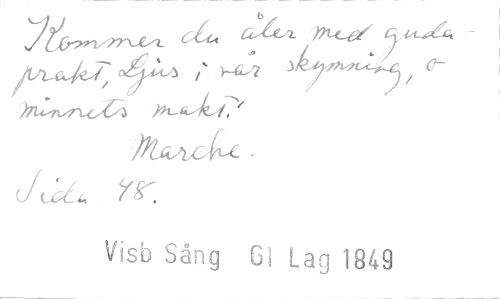 Kommer du åter med guda-
prakt, Ljus i vår skymning, o
minnets makt!
Marche.
Sida 48.
Visb Sång Gl Lag 1849